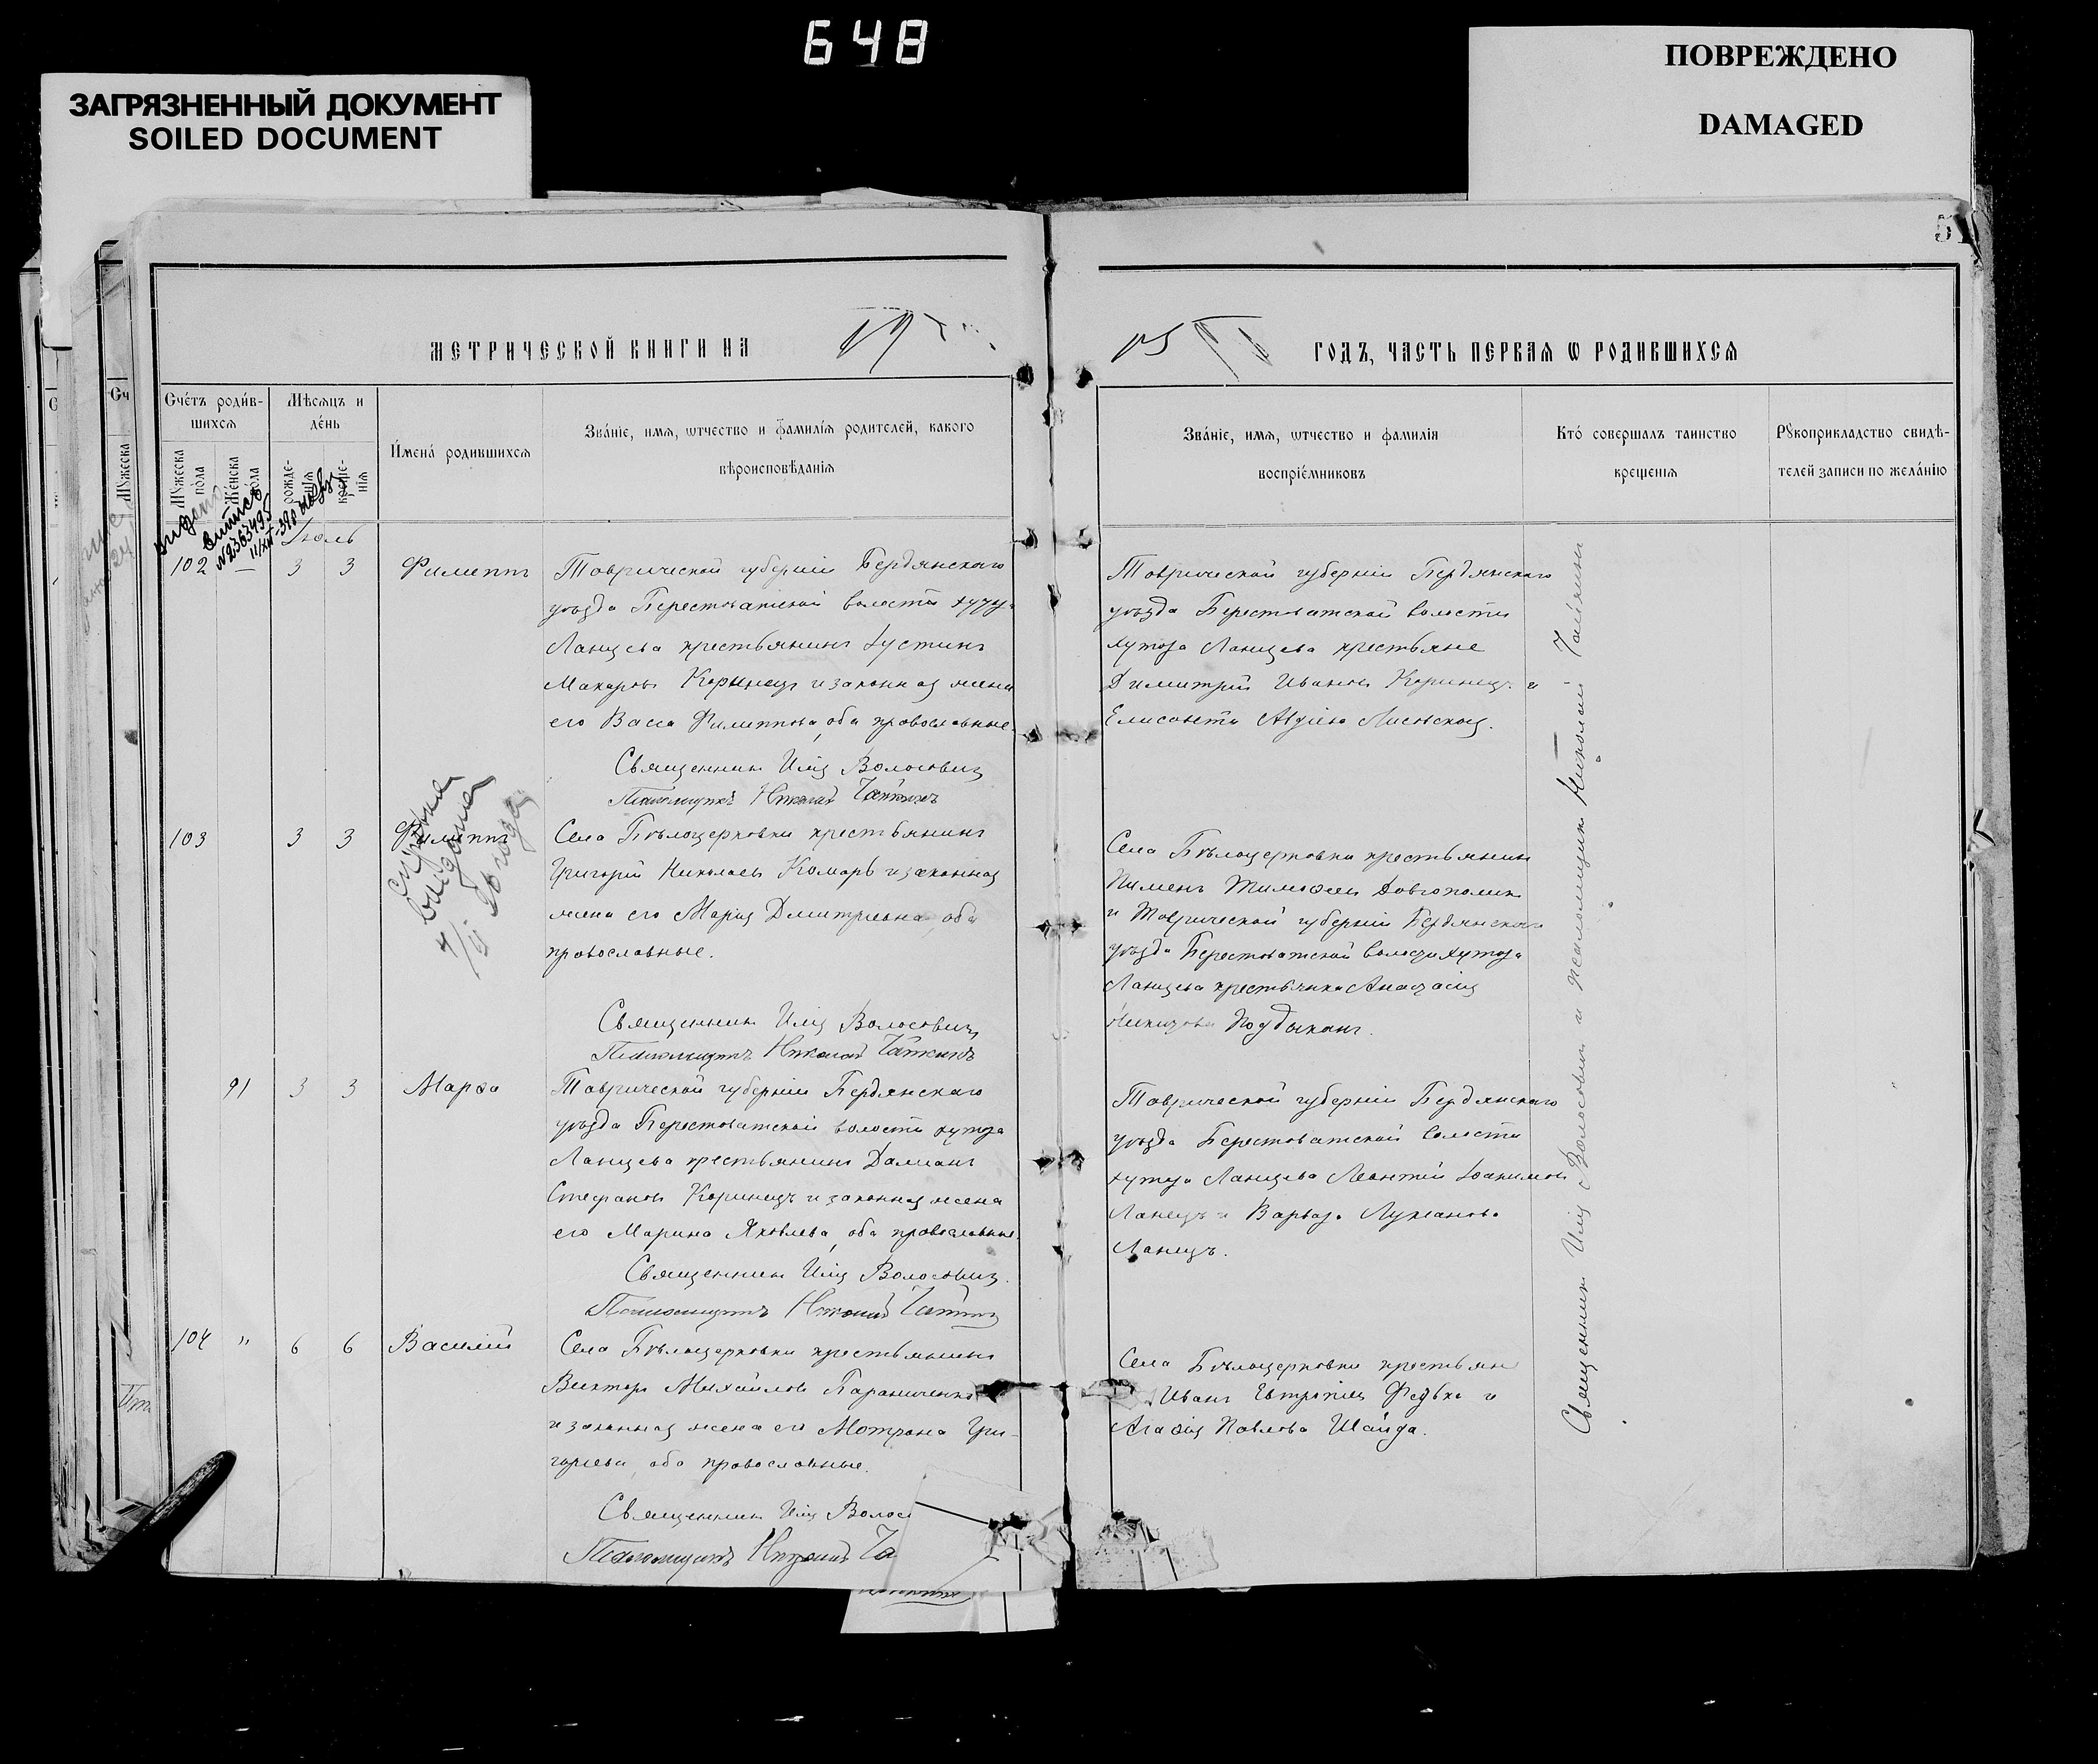 648
ЗАГРЯЗНЕННЫЙ ДОКУМЕНТ
SOILED DOCUMENT
ПОВРЕЖДЕНО
DAMAGED
МЕТРИЧЕСКОЙ КНИГИ НА 19
05 ГОДЪ, ЧАСТЬ ПЕРВАЯ Ѡ РОДИВШИХСЯ
Счетъ родив-
шихся
Мѣсяцъ и
день
Имена родившихся
Званіе, имя, ѡтчество и фамилія родителей, какого
вѣроисповѣданія
Мꙋжеска
пола
Женска
пола
рожде-
нія
креще-
нія
Званіе, имя, ѡтчество и фамилія
воспріемниковъ
Кто совершалъ таинство
крещенія
Рꙋкоприкладство свидѣ-
телей записи по желанію
Іюль
102 — 3 3 Филиппъ
Таврической губерніи Бердянскаго
уѣзда Берестоватской волости хутора
Ланцева крестьянинъ Іустинъ
Макаровъ Коринецъ и законная жена
его Васса Филиппова, оба православные.
Священникъ Илія Волосовичъ
Псаломщикъ Николай
Таврической губерніи Бердянскаго
уѣзда Берестоватской волости
хутора Ланцева крестьяне
Димитрій Ивановъ Коринецъ и
Елисавета Авдіева Лисовская.
103 3 3 Филиппъ
Справка
выдана
Села Бѣлоцерковки крестьянинъ
Григорій Николаевъ Комаръ и законная
жена его Марія Дмитріевна, оба
православные.
Священникъ Илія Волосовичъ
Псаломщикъ Николай
Села Бѣлоцерковки крестьянинъ
Пименъ Тимоѳеевъ Довгополикъ
и Таврической губерніи Бердянскаго
уѣзда Берестоватской волости хутора
Ланцева крестьянка Анастасія
91 3 3 Марѳа
Таврической губерніи Бердянскаго
уѣзда Берестоватской волости хутора
Ланцева крестьянинъ Даміанъ
Стефановъ Коринецъ и законная жена
его Марина Яковлева, оба православные.
Священникъ Илія Волосовичъ.
Псаломщикъ Николай
Таврической губерніи Бердянскаго
уѣзда Берестоватской волости
хутора Ланцева Леонтій Іоакимовъ
Ланецъ и Варвара Лукьянова
Ланецъ.
104 " 6 6 Василій
Села Бѣлоцерковки крестьянинъ
Викторъ Михайловъ
и законная жена его Мотрона Гри-
горьева, оба православные.
Священникъ Илія Волос
Псаломщикъ Николай
Села Бѣлоцерковки крестьяне
Иванъ и
Агаѳія Павлова Шайда.
Священникъ Илія Волосовичъ и псаломщикъ Николай